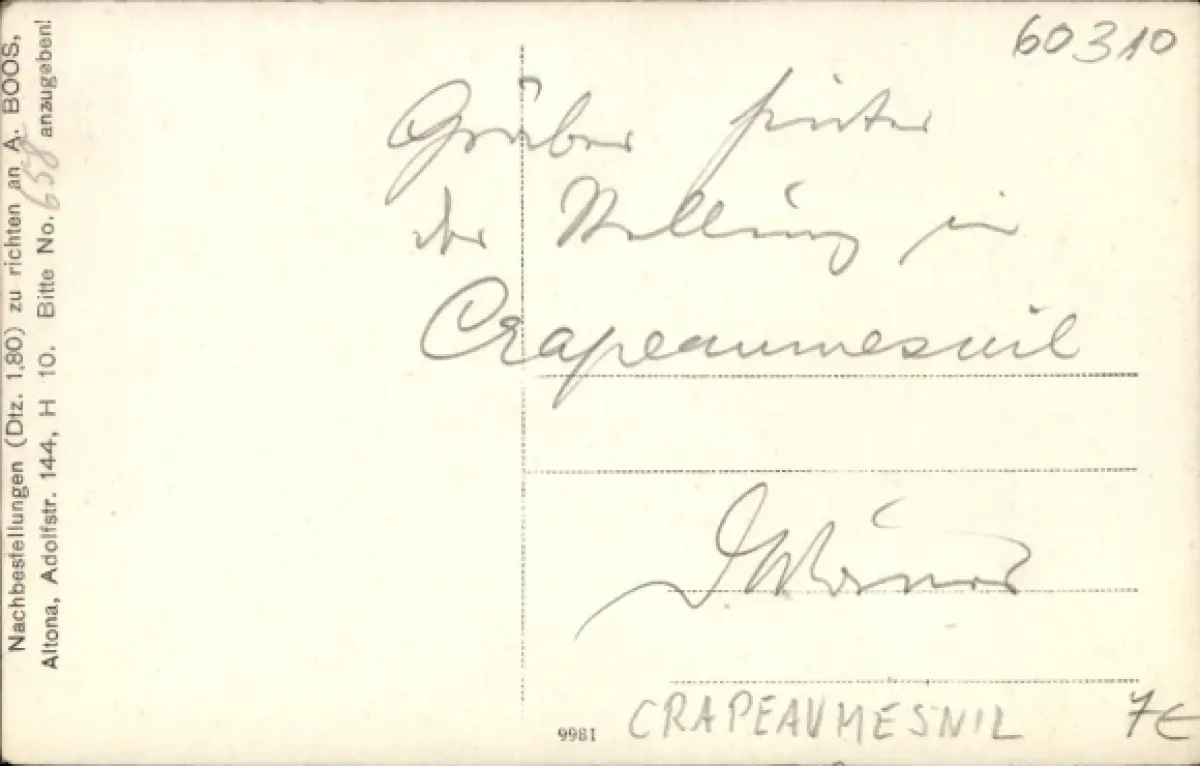 60310
Gräber hinter
der Stellung in
Crapeaumesnil
CRAPEAUMESNIL
7€
9981
Nachbestellungen (Dtz. 1,80) zu richten an A. BOOS,
Altona, Adolfstr. 144, H 10. Bitte No. 658 anzugeben!